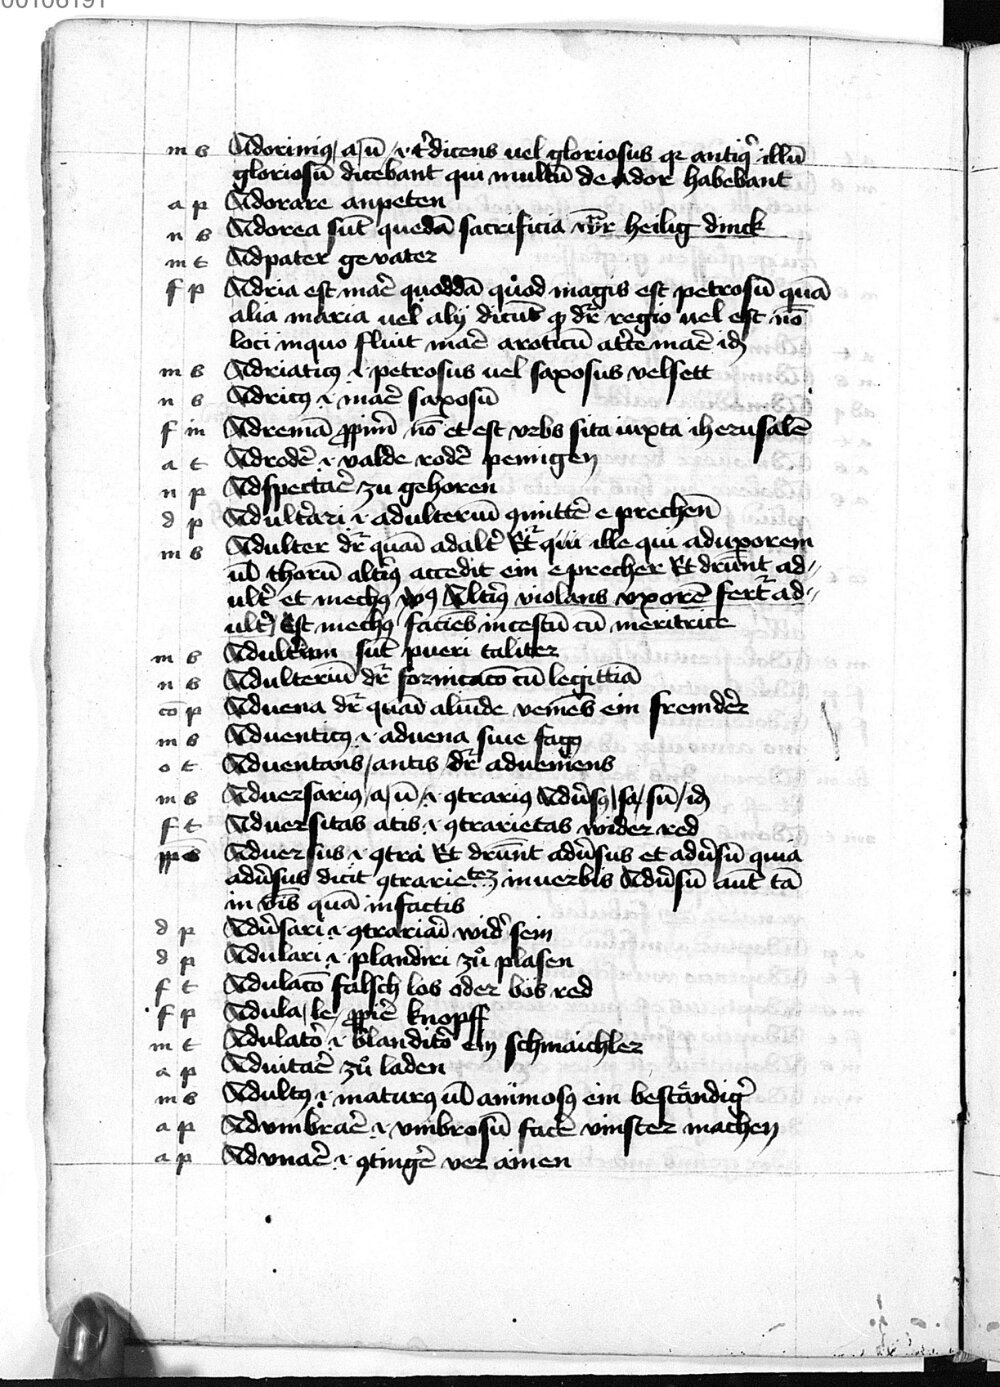 00106191
m s Adorinius / a / u᷑ .i. t᷑dicens uel gloriosus qr antiq᷑ illū
gloriosū dicebant qui multū de ador habebant
a p Adorare anpeten
n s Adorea sūt quedā sacrificia heilig dinck
m t Adpater gevater
f p Adria est mar᷑ quoddā quod magis est petrosū quā
alia maria uel alij dicūt qd dr᷑ regio uel est nō
loci inquo fluit mar᷑ id
m s Adriaticus .i. petrosus uel saxosus velsett
n s Adricus .i. mar᷑ saxosū
f in nō et est vrbs sita iuxta iherusalē
a t Adrodē᷑ .i. valde rodē᷑ pennigen
n p Adspectar᷑ zu gehoren
d p Adult᷑ari .i. adulteriū 9mitt᷑e eprechen
m s Adulter dr᷑ quasi adalt᷑ ille qui ad uxorem
ul᷑ thorū alt᷑ius accedit ein eprecher Et dicūnt ad-
ult᷑ et mechus Alt᷑ius violans vxorē fert᷑ ad-
ult᷑ Est mechus faciens incestū cū meritrice
m s sūt pueri taliter
n s Adulteriū dr᷑ fornicaco cū legittiā
cō p Aduena dr᷑ quasi aliūde veniens ein fremder
m s Aduenticus .i. aduena siue
o t Aduentans / antis dr᷑ adueniens
m s Aduersarius / a / u᷑ / .i. 9trarius Adu᷑sus / sa / sū / id
f t Aduersitas atis .i. 9trarietas wider red
pp s Aduersus .i. 9tra Et dicūnt adu᷑sus et adu᷑sū quia
adu᷑sus dicit 9trarietatē inuerbis Adu᷑sū aut᷑ tā
in vbis quā infactis
d p Adu᷑sari .i. 9trariari wid᷑ sein
d p Adulari .i. plandiri zů plasen
f t Adulacō falsch los oder bos red
f p Adula / le knopff
m t Adulator .i. blanditor ein schmaichler
a p Aduitar᷑ zů laden
m s Adultus .i. maturus ul᷑ animosus ein bestandig᷑
a p Advmbrar᷑ .i. vmbrosū facē vinster machen
a p Advnar᷑ .i. 9tinger᷑ ver ainen